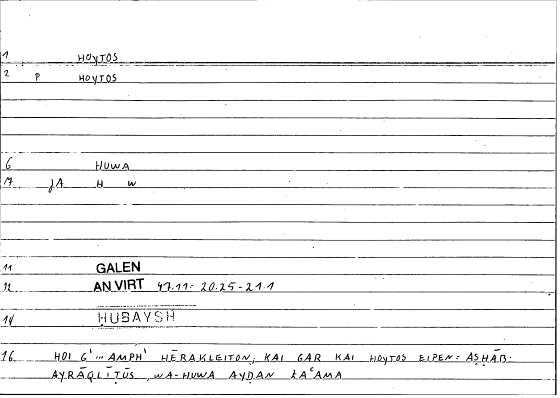 1 HOYTOS
2 P HOYTOS
6 HUWA
17 JA H W
11 GALEN
12 AN VIRT 47.11 = 20.25-21.1
14 HUBAYSH
16 HOI G' ... AMPH' HĒRAKLEITON; KAI GAR KAI HOYTOS EIPEN = AṢḤĀB-
AYRĀQLĪṬŪS, WA-HUWA AYḌAN ZAʿAMA